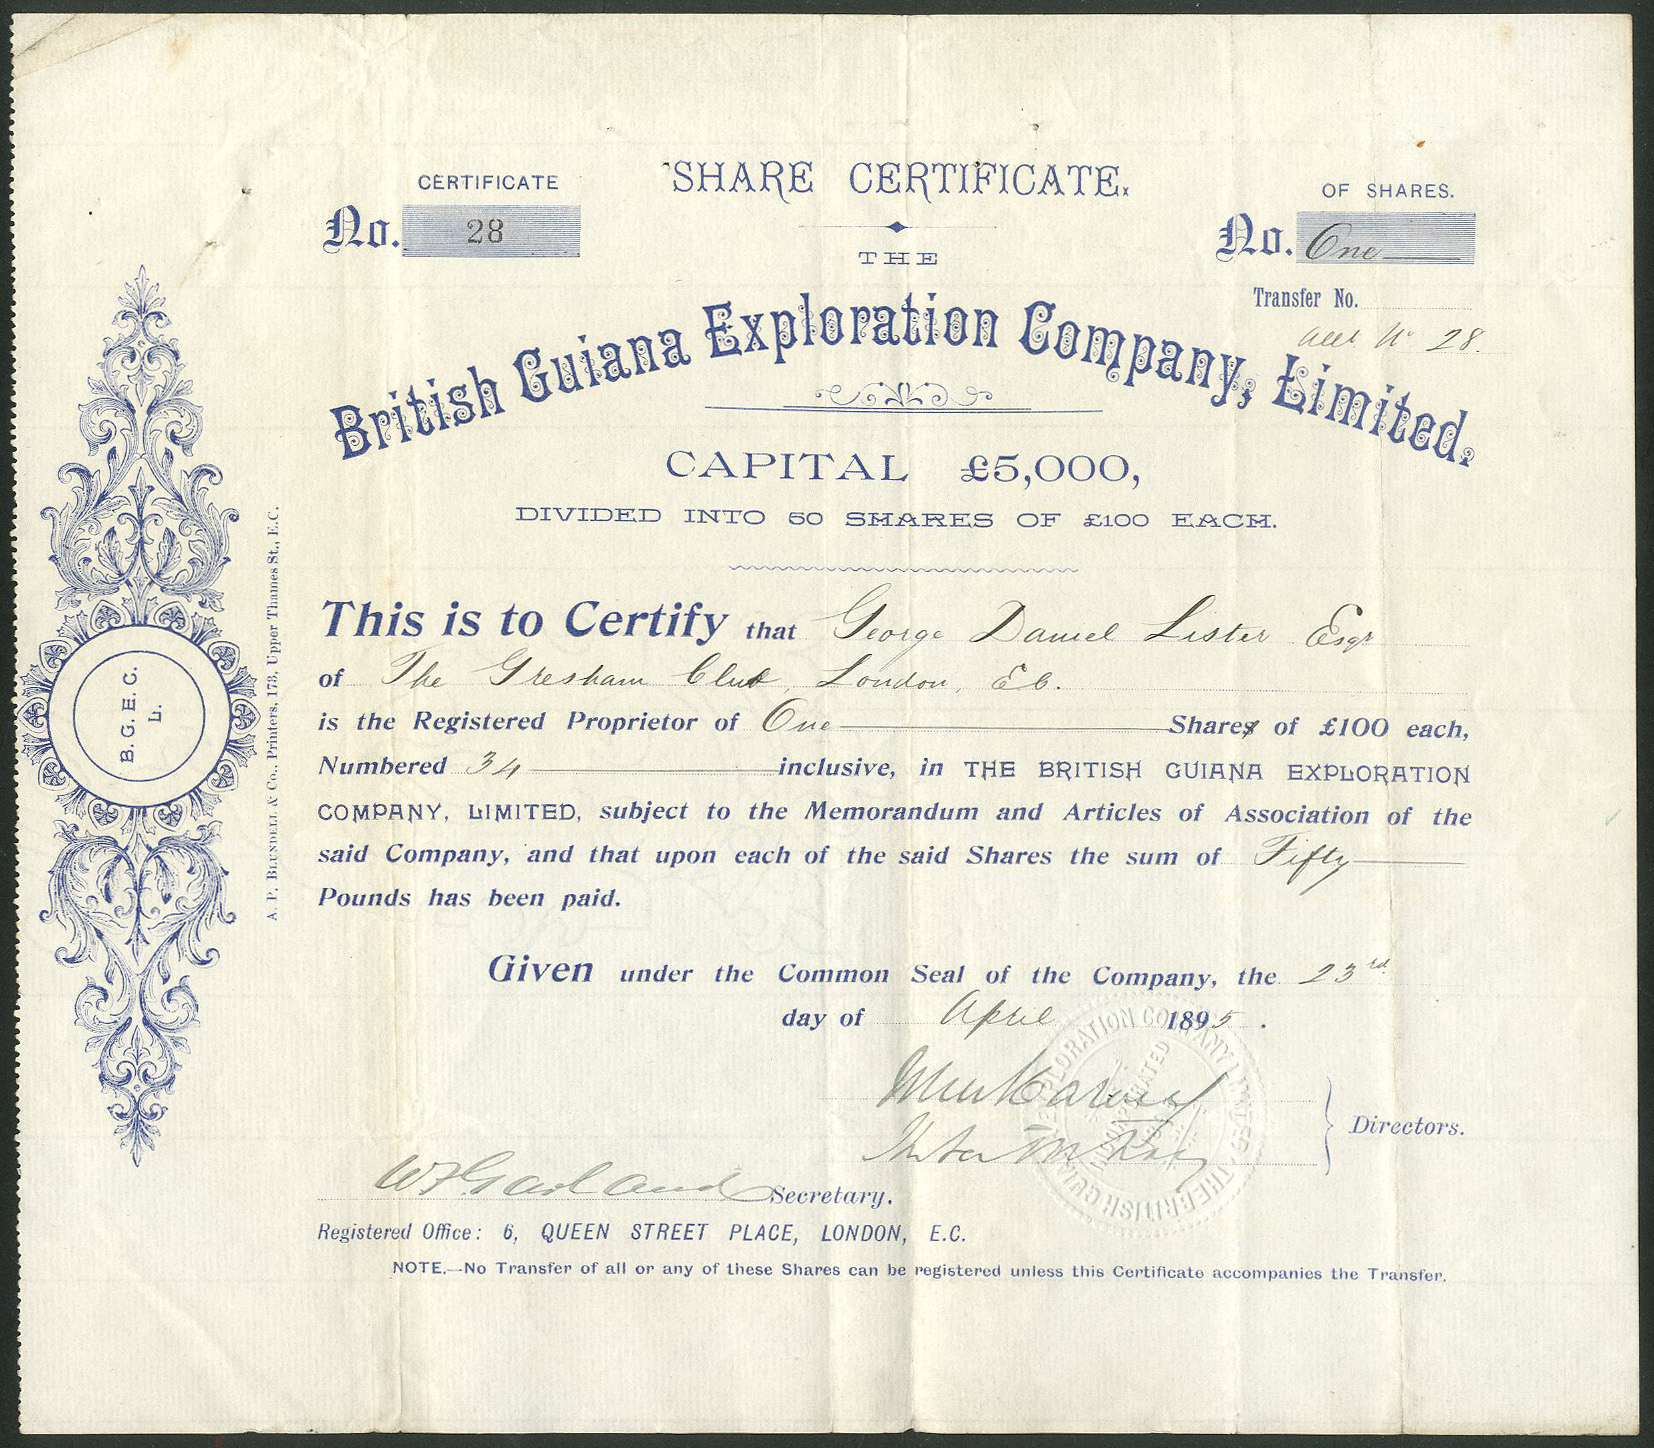 CERTIFICATE
No. 28
SHARE CERTIFICATE.
OF SHARES.
No. One
Transfer No.
No 28.
THE
British Guiana Exploration Company, Limited.
CAPITAL £5,000,
DIVIDED INTO 50 SHARES OF £100 EACH.
This is to Certify that George Daniel Lister Esqr
of The Gresham Club, London, E.C.
is the Registered Proprietor of One Shares of £100 each,
Numbered 34 inclusive, in THE BRITISH GUIANA EXPLORATION
COMPANY, LIMITED, subject to the Memorandum and Articles of Association of the
said Company, and that upon each of the said Shares the sum of Fifty
Pounds has been paid.
Given under the Common Seal of the Company, the 23rd
day of April 1895.
Directors.
Secretary.
Registered Office: 6, QUEEN STREET PLACE, LONDON, E.C.
NOTE.—No Transfer of all or any of these Shares can be registered unless this Certificate accompanies the Transfer.
B. G. E. C.
L.
A. P. BLUNDELL & Co., Printers, 173, Upper Thames St., E.C.
THE BRITISH GUIANA EXPLORATION COMPANY LIMITED
INCORPORATED